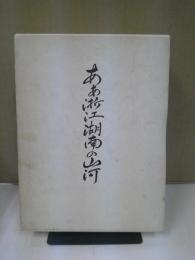 ああ淞江湖南の山河